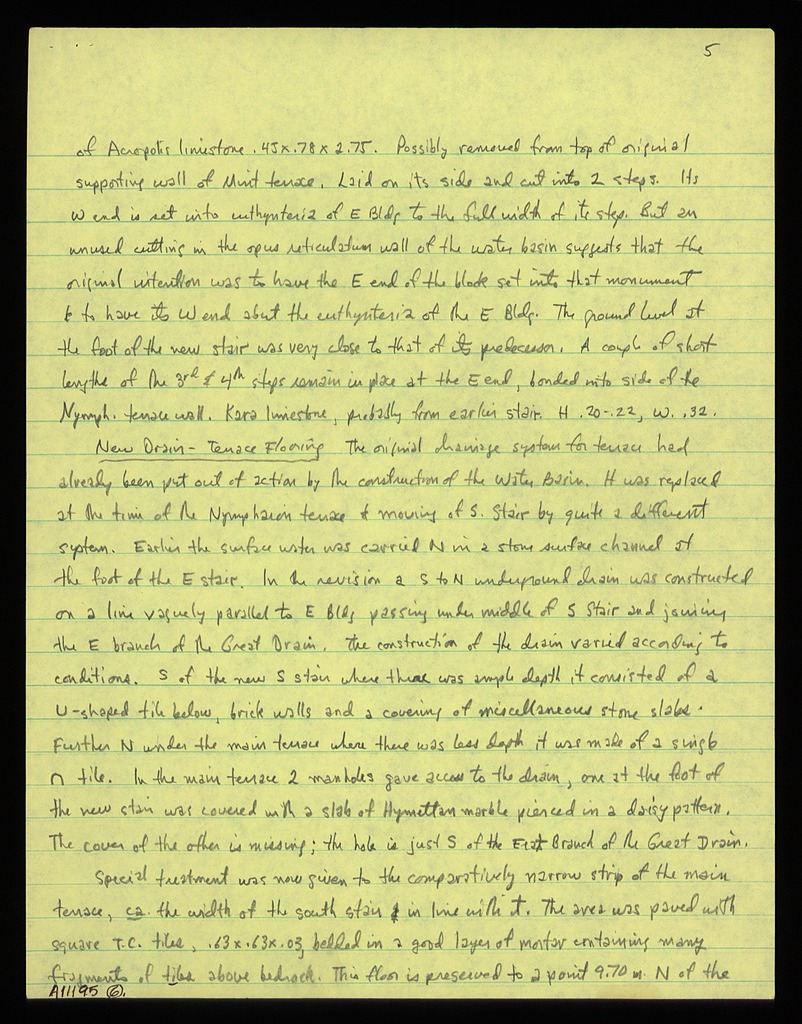 5
of Acropolis limestone .45x.78x2.75. Possibly removed from top of original
supporting wall of Mint terrace. Laid on its side and cut into 2 steps. Its
W end is set into euthynteria of E Bldg to the full width of its step. But an
unused cutting in the opus reticulatum wall of the water basin suggests that the
original intention was to have the E end of the block set into that monument
& to have its W end abut the euthynteria of the E Bldg. The ground level at
the foot of the new stair was very close to that of its predecessor. A couple of short
lengths of the 3rd & 4th steps remain in place at the E end, bonded into side of the
Nymph. terrace wall. Kara limestone, probably from earlier stair. H .20-.22, W. .32.
New Drain - Terrace Flooring The original drainage system for terrace had
already been put out of action by the construction of the Water Basin. It was replaced
at the time of the Nymphaion terrace & moving of S. Stair by quite a different
system. Earlier the surface water was carried N in a stone surface channel at
the foot of the E stair. In the revision a S to N underground drain was constructed
on a line vaguely parallel to E Bldg passing under middle of S Stair and joining
the E branch of the Great Drain. The construction of the drain varied according to
conditions. S of the new S stair where there was ample depth it consisted of a
U-shaped tile below, brick walls and a covering of miscellaneous stone slabs.
Further N under the main terrace where there was less depth it was made of a single
∩ tile. In the main terrace 2 manholes gave access to the drain, one at the foot of
the new stair was covered with a slab of Hymettan marble pierced in a daisy pattern.
The cover of the other is missing; the hole is just S of the East Branch of the Great Drain.
Special treatment was now given to the comparatively narrow strip of the main
terrace, ca. the width of the south stair & in line with it. The area was paved with
square T.C. tiles, .63x.63x.03, bedded in a good layer of mortar containing many
fragments of tiles above bedrock. This floor is preserved to a point 9.70 m. N of the
A11195 (6).